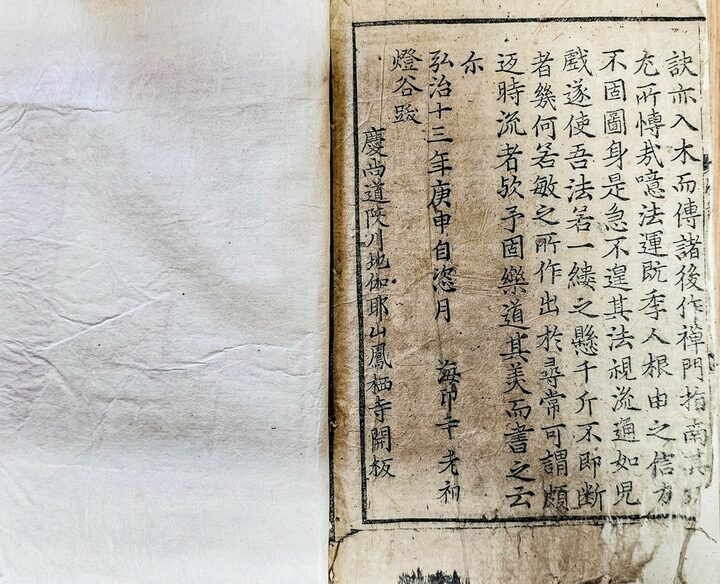 訣亦入木而傳諸後作禪門指南其
充所愽㢤噫法運旣季人根由之信力
不固圖身是急不遑其法視流通如児
戱遂使吾法若一縷之懸千斤不即断
者幾何若敏之所作出於尋常可謂頗
迈時流者欤予固樂道其美而書之云
尓
弘治十三年庚申自恣月 海印寺老衲
燈谷跋
慶尚道陜川地伽耶山鳳栖寺開板